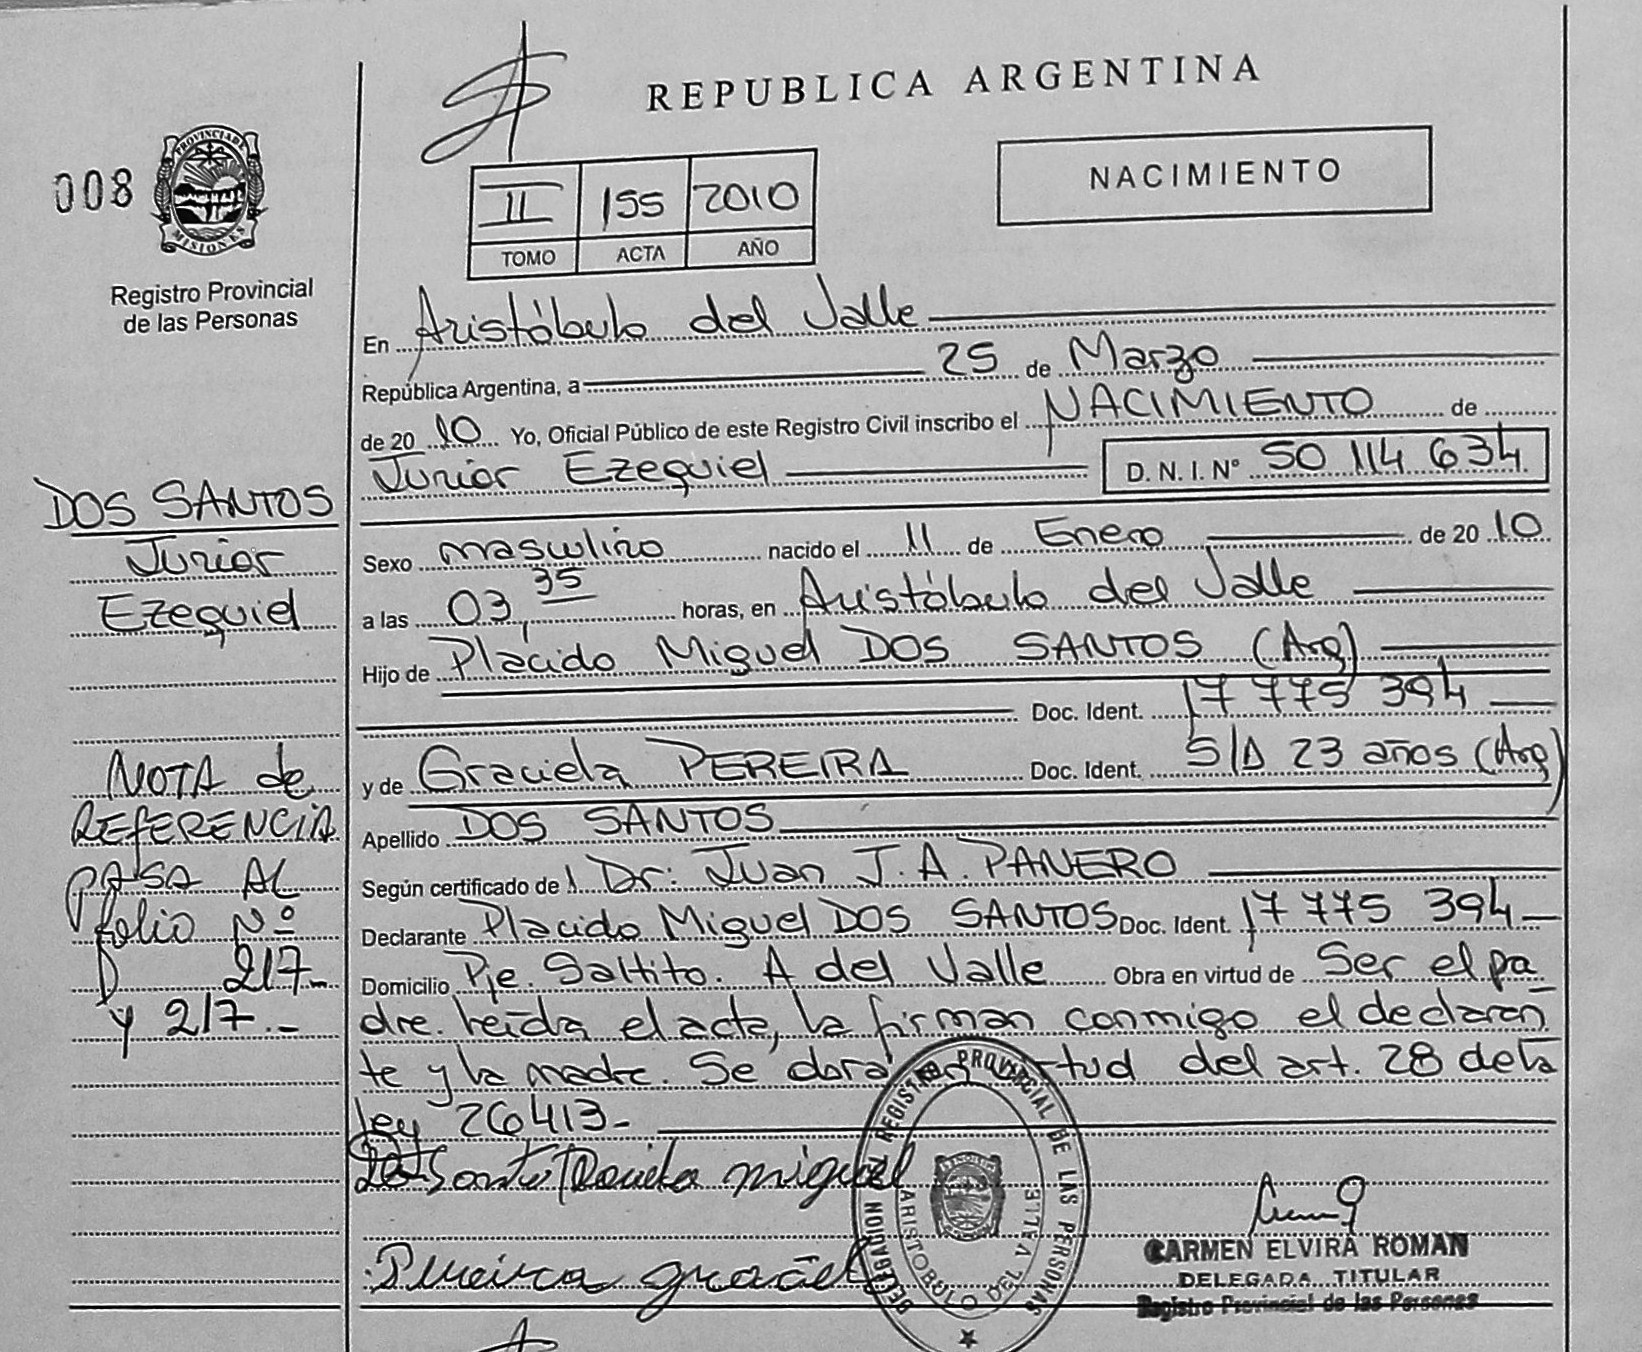 REPUBLICA ARGENTINA
008
PROVINCIA DE
MISIONES
Registro Provincial
de las Personas
II 155 2010
TOMO ACTA AÑO
NACIMIENTO
En Aristóbulo del Valle
República Argentina, a 25 de Marzo
de 2010 Yo, Oficial Público de este Registro Civil inscribo el NACIMIENTO de
Junior Ezequiel D. N. I. Nº 50 114 634
DOS SANTOS
Junior
Ezequiel
Sexo masculino nacido el 11 de Enero de 2010
a las 03,35 horas, en Aristóbulo del Valle
Hijo de Plácido Miguel DOS SANTOS (Arg)
Doc. Ident. 17 775 394
y de Graciela PEREIRA Doc. Ident. S/D 23 años (Arg)
Apellido DOS SANTOS
Según certificado de Dr: Juan J. A. PANERO
Declarante Plácido Miguel DOS SANTOS Doc. Ident. 17 775 394
Domicilio Pje. Saltito. A del Valle Obra en virtud de Ser el pa
dre. Leída el acta, la firman conmigo el declaran
te y la madre. Se dora en virtud del art. 28 de la
ley 26413-
NOTA de
REFERENCIA
PASA AL
folio Nº
217-
y 217.-
Dos Santos Placido miguel
Pereira graciel
DELEGACION REGISTRO PROVINCIAL DE LAS PERSONAS
ARISTOBULO DEL VALLE
CARMEN ELVIRA ROMAN
DELEGADA TITULAR
Registro Provincial de las Personas